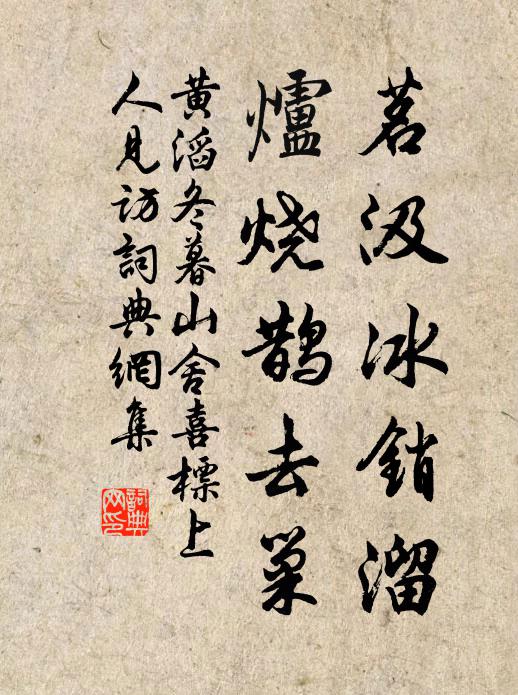 茗汲冰銷溜
爐烧鹊去巢
黄滔冬暮山舍喜標上
人見访詞典網集
詞典网印